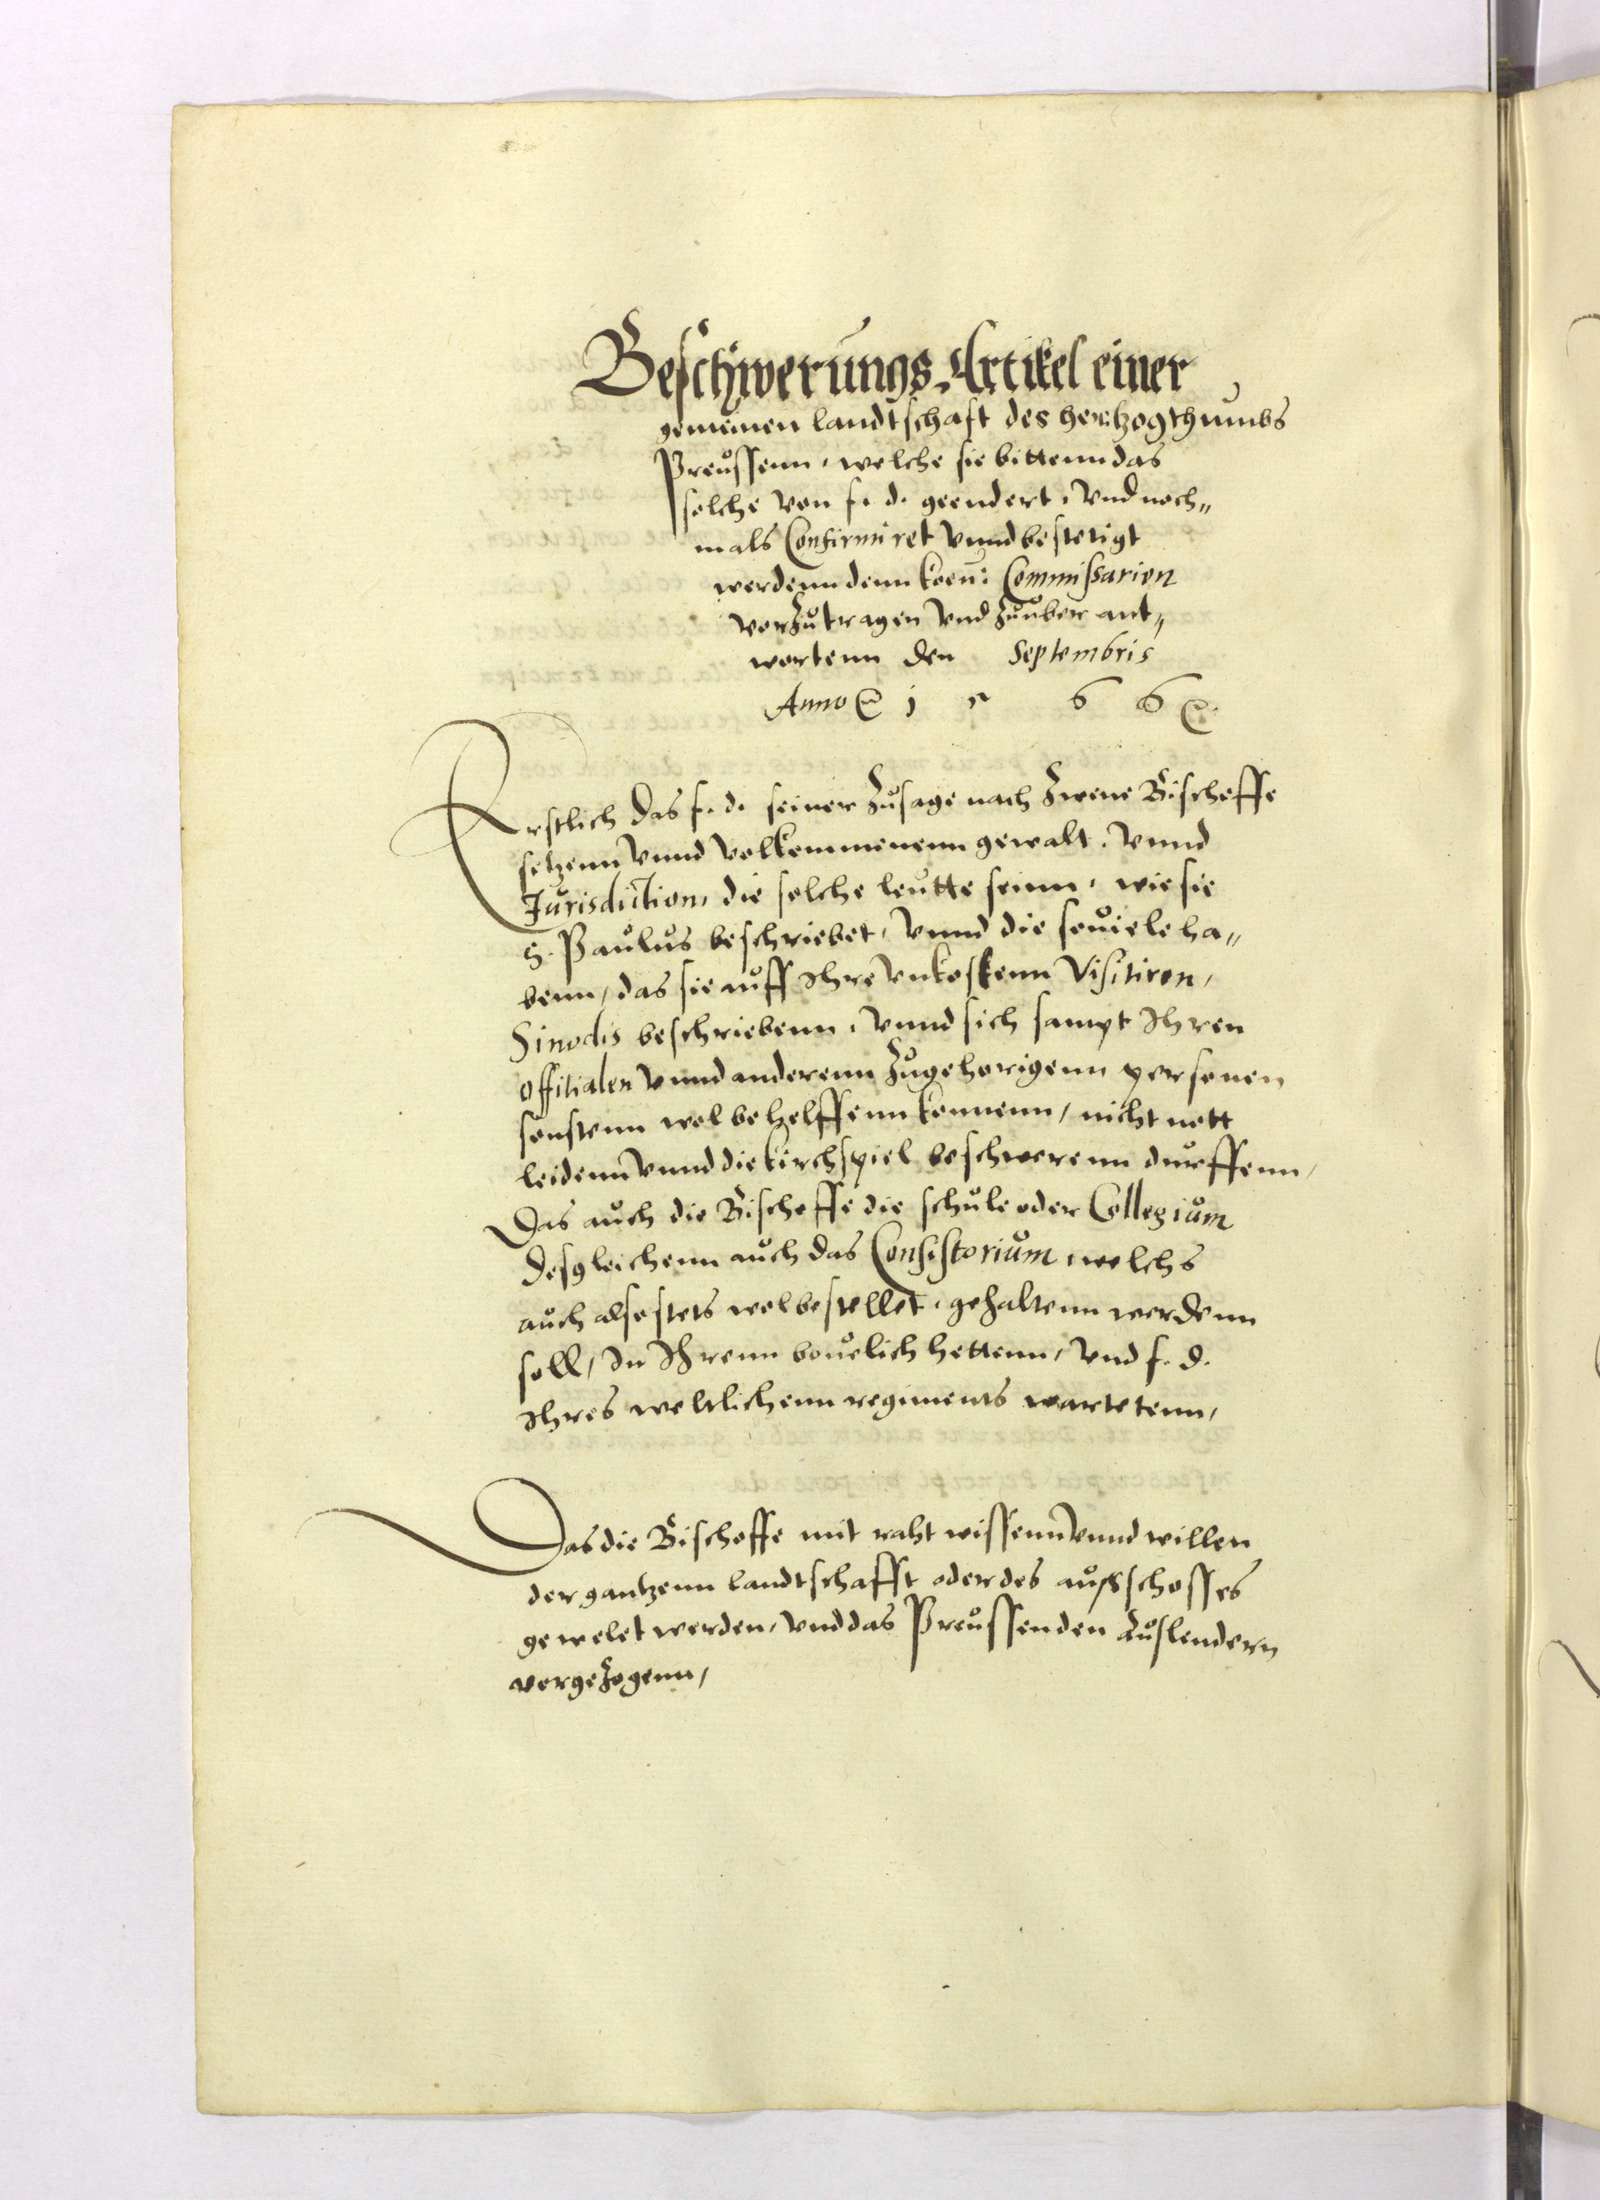 Beschwerungs Artikel einer
gemeinen landtschaft des hertzogthumbs
Preussenn, welche sie bittenn das
solche von f. d. geendert, vnd noch„
mals Confirmiret vnnd bestetigt
werdenn denn koen: Commissarien
vorzutragen vnd zuuber ant„
wortenn den Septembris
Anno 1 5 6 6
Erstlich das f. d. seiner zusage nach zwene Bischoffe
setzenn vnnd volkommenenn gewalt, vnnd
Jurisdiction, die solche leutte seinn, wie sie
S. Paulus beschriebet, vnnd die souiele ha„
benn, das sie auff Ihre vnkostenn Visitiren,
Sinodis beschriebenn, vnnd sich sampt Ihren
offitialen vnnd anderenn zugehorigenn personen
sonstenn wol behelffenn konnenn, nicht nott
leidenn vnnd die kirchspiel beschwerenn durffenn,
Das auch die Bischoffe die schule oder Collegium
desgleichenn auch das Consistorium welchs
auch also stets wol bestellet, gehaltenn werdenn
soll, In Ihrenn beuelich hettenn, vnd f. d.
Ihres weltlichenn regiments wartetenn,
Das die Bischoffe mit raht wissenn vnnd willen
der gantzenn landtschafft oder des ausschosses
gewelet werden, vnd das Preussen den Auslendern
vorgezogenn,